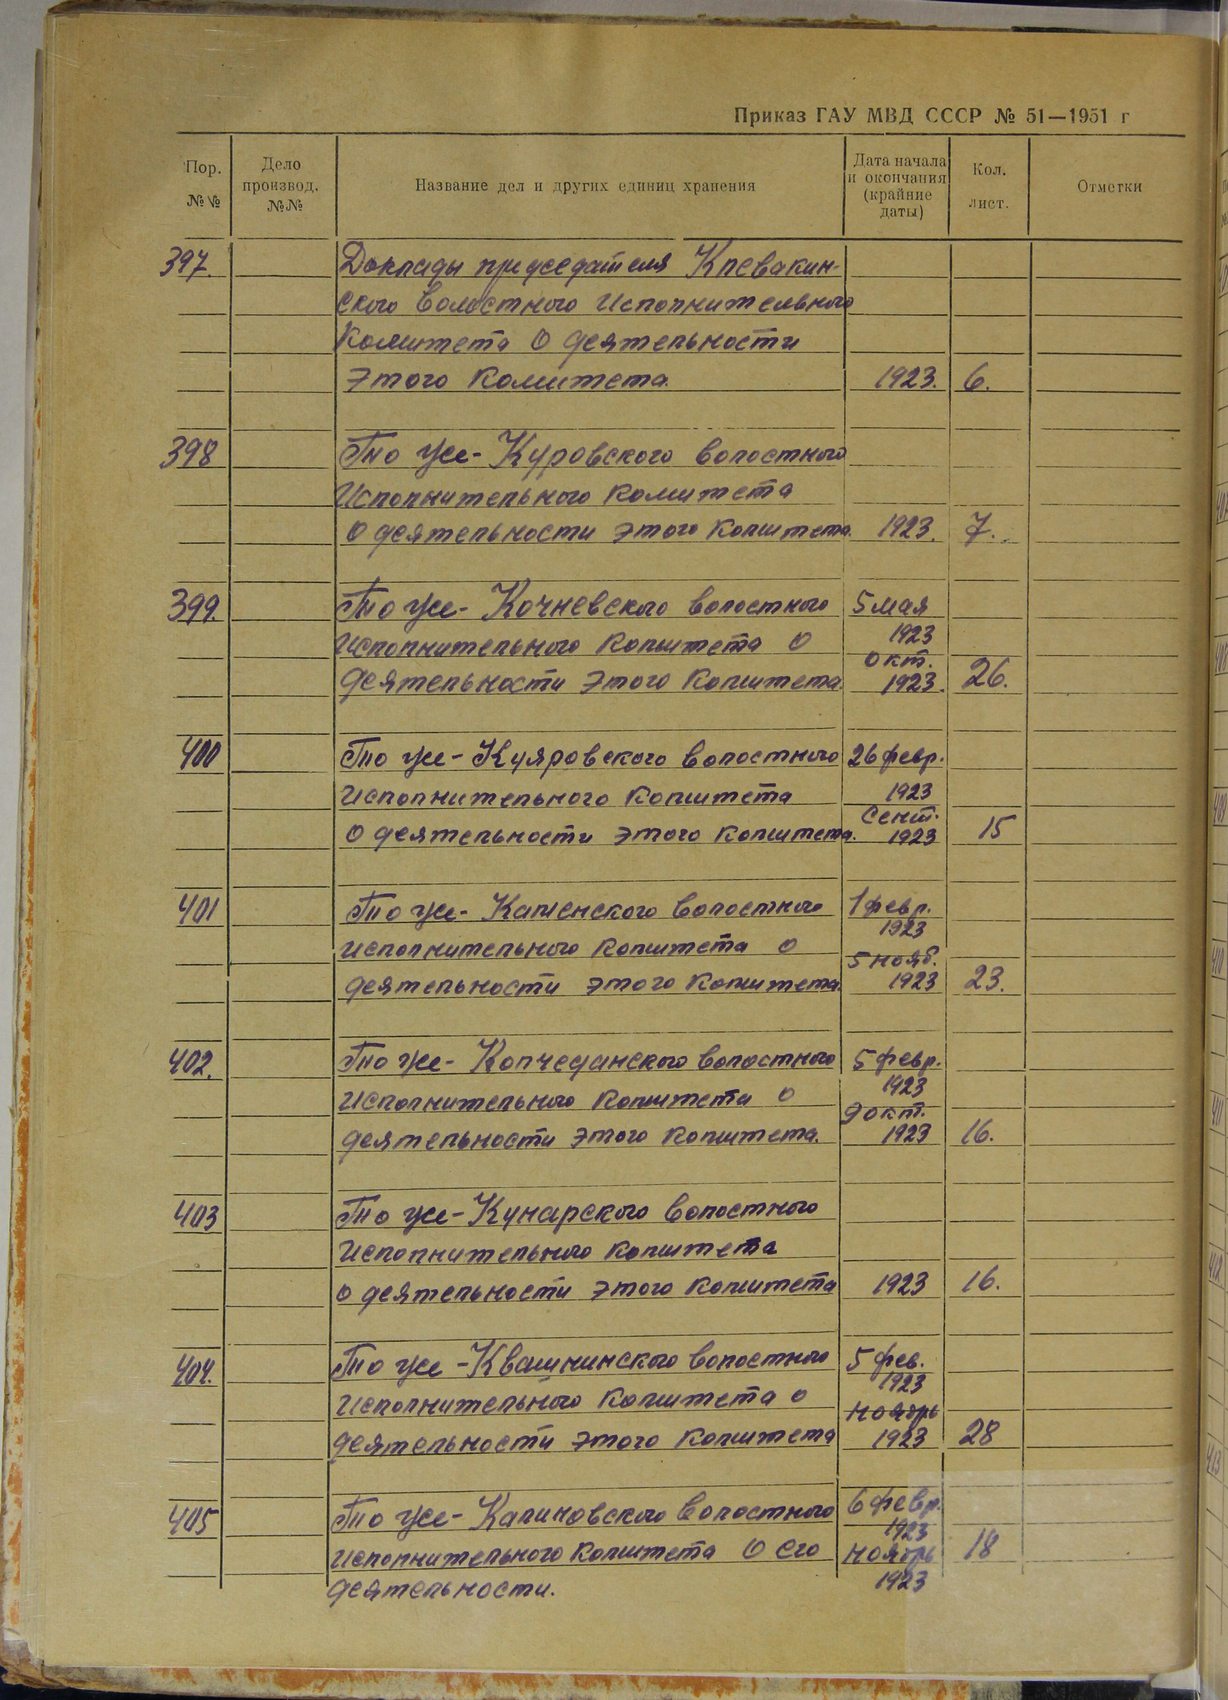 Приказ ГАУ МВД СССР № 51—1951 г
Пор. №№
Дело производ. №№
Название дел и других единиц хранения
Дата начала и окончания (крайние даты)
Кол. лист.
Отметки
397. Доклады председателя Клевакин-
ского волостного исполнительного
комитета о деятельности
этого комитета. 1923. 6.
398 То же - Куровского волостного
исполнительного комитета
о деятельности этого комитета. 1923. 7.
399. То же - Кочневского волостного 5 мая
исполнительного комитета о 1923
окт.
деятельности этого комитета. 1923. 26.
400 То же - Куяровского волостного 26 февр.
исполнительного комитета 1923
сент.
о деятельности этого комитета. 1923 15
401 То же - Каменского волостного 1 февр.
1923
исполнительного комитета о 5 нояб.
деятельности этого комитета. 1923 23.
402. То же - Колчеданского волостного 5 февр.
1923
исполнительного комитета о 9 окт.
деятельности этого комитета. 1923 16.
403 То же - Кунарского волостного
исполнительного комитета
о деятельности этого комитета 1923 16.
404. То же - Квашнинского волостного 5 фев.
1923
исполнительного комитета о ноябрь
деятельности этого комитета 1923 28
405 То же - Калиновского волостного 6 февр.
1923
исполнительного комитета о его ноябрь 18
деятельности. 1923